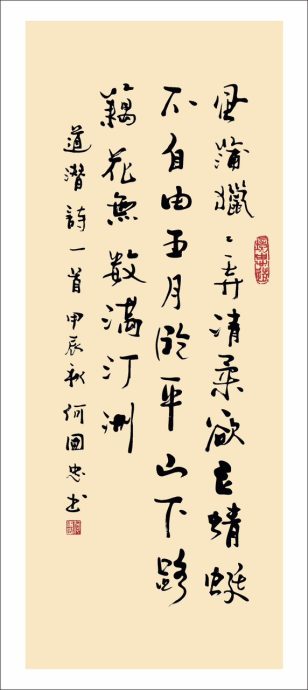 風蒲獵〻弄清柔欲立蜻蜓
不自由五月臨平山下路
藕花無數滿汀洲
道潛詩一首甲辰秋何國忠书